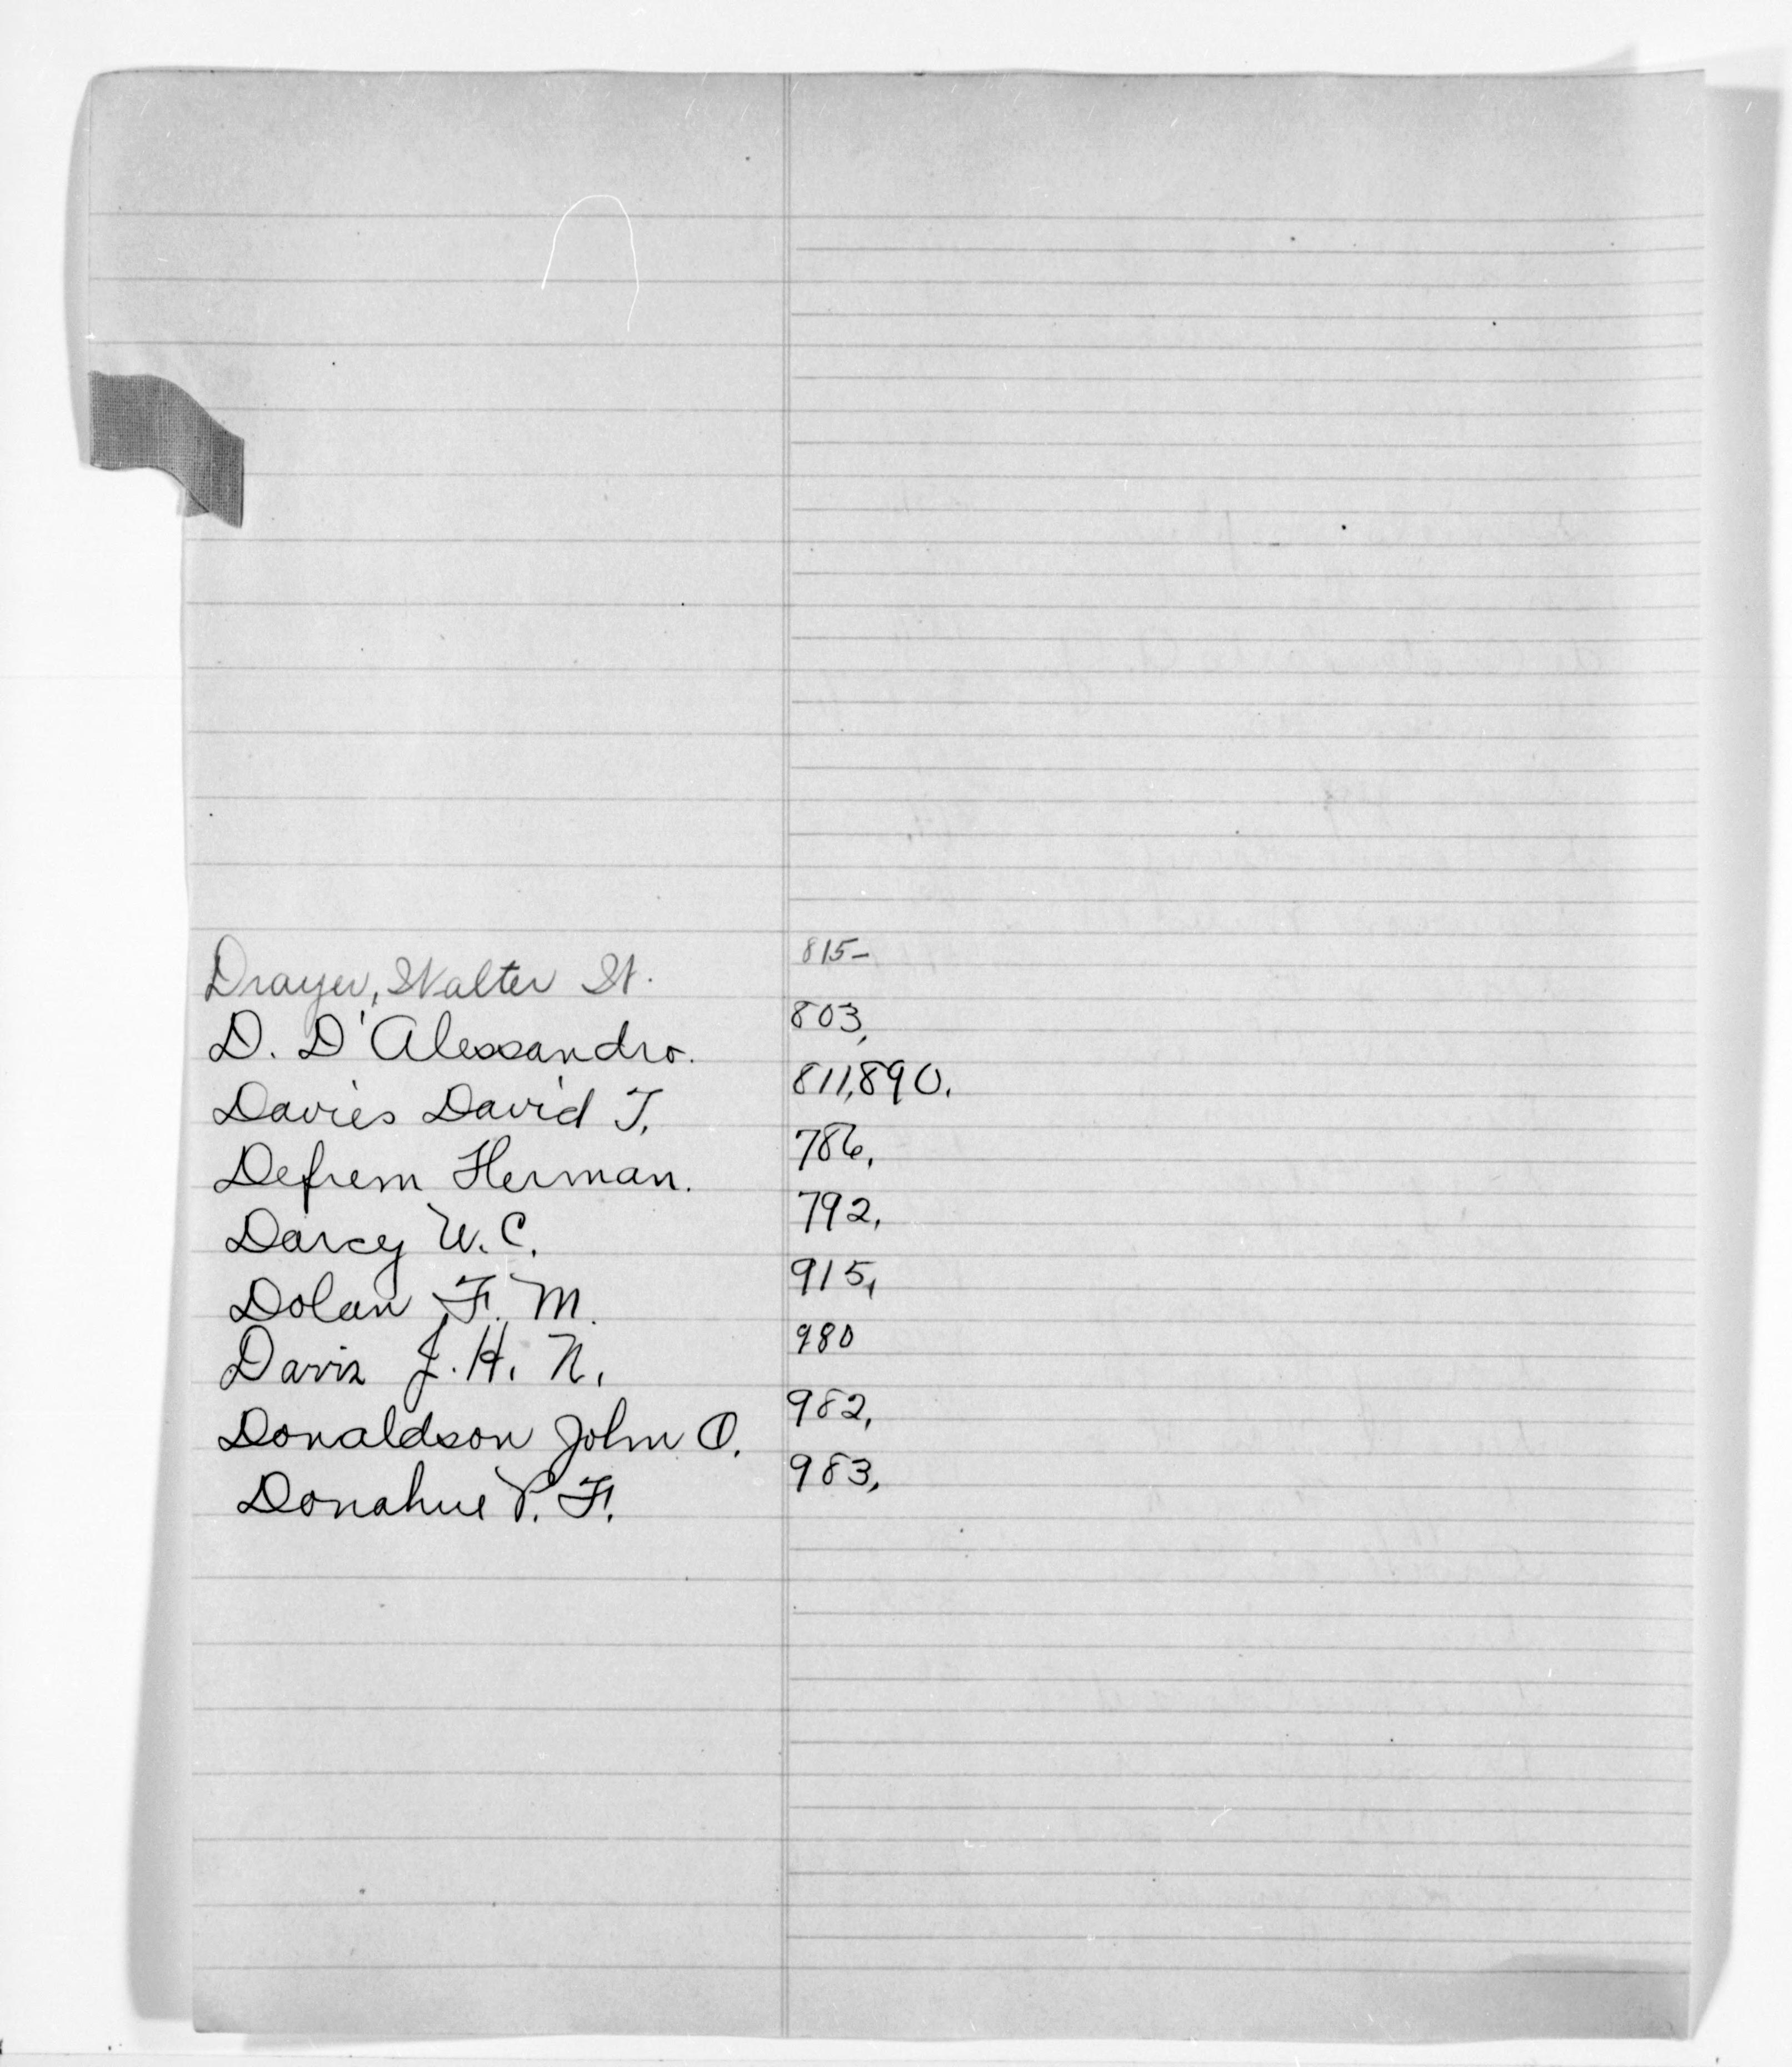 Drayer, Walter W. 815-
D. D'Alessandro. 803,
Davies David T. 811,890.
Defrem Herman. 786,
Darcy W. C. 792,
Dolan F. M. 915,
Davis J. H. N. 980
Donaldson John O. 982,
Donahue P. F. 983,